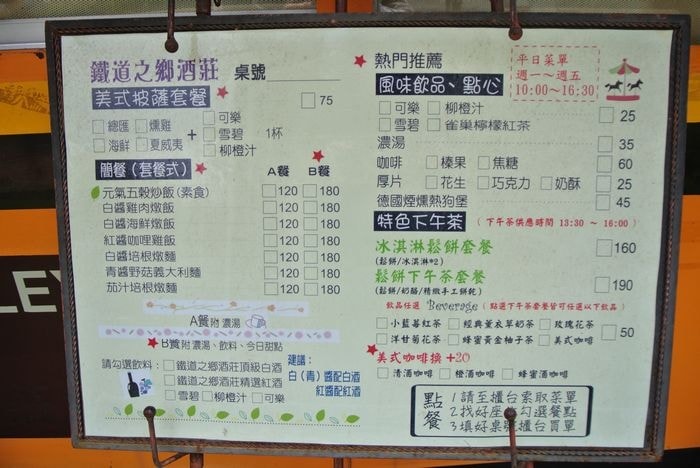 鐵道之鄉酒莊 桌號
美式披薩套餐 75
總匯 燻雞 + 可樂
海鮮 夏威夷 雪碧 1杯
柳橙汁
簡餐(套餐式) A餐 B餐
元氣五穀炒飯(素食) 120 180
白醬雞肉燉飯 120 180
白醬海鮮燉飯 120 180
紅醬咖哩雞飯 120 180
白醬培根燉麵 120 180
青醬野菇義大利麵 120 180
茄汁培根燉麵 120 180
A餐附濃湯
B餐附濃湯、飲料、今日甜點
請勾選飲料: 鐵道之鄉酒莊頂級白酒
鐵道之鄉酒莊精選紅酒
雪碧 柳橙汁 可樂
建議:
白(青)醬配白酒
紅醬配紅酒
熱門推薦
平日菜單
週一~週五
10:00~16:30
風味飲品、點心
可樂 柳橙汁 25
雪碧 雀巢檸檬紅茶
濃湯 35
咖啡 榛果 焦糖 60
厚片 花生 巧克力 奶酥 25
德國煙燻熱狗堡 45
特色下午茶 (下午茶供應時間 13:30 ~ 16:00)
冰淇淋鬆餅套餐 160
(鬆餅/冰淇淋*2)
鬆餅下午茶套餐 190
(鬆餅/奶酪/精緻手工餅乾)
飲品任選 Beverage (點選下午茶套餐皆可任選以下飲品)
小藍莓紅茶 經典薰衣草奶茶 玫瑰花茶 50
洋甘菊花茶 蜂蜜黃金柚子茶 美式咖啡
美式咖啡換+20
清酒咖啡 橙酒咖啡 蜂蜜酒咖啡
點餐
1請至櫃台索取菜單
2找好座位勾選餐點
3填好桌號櫃台買單
LEY